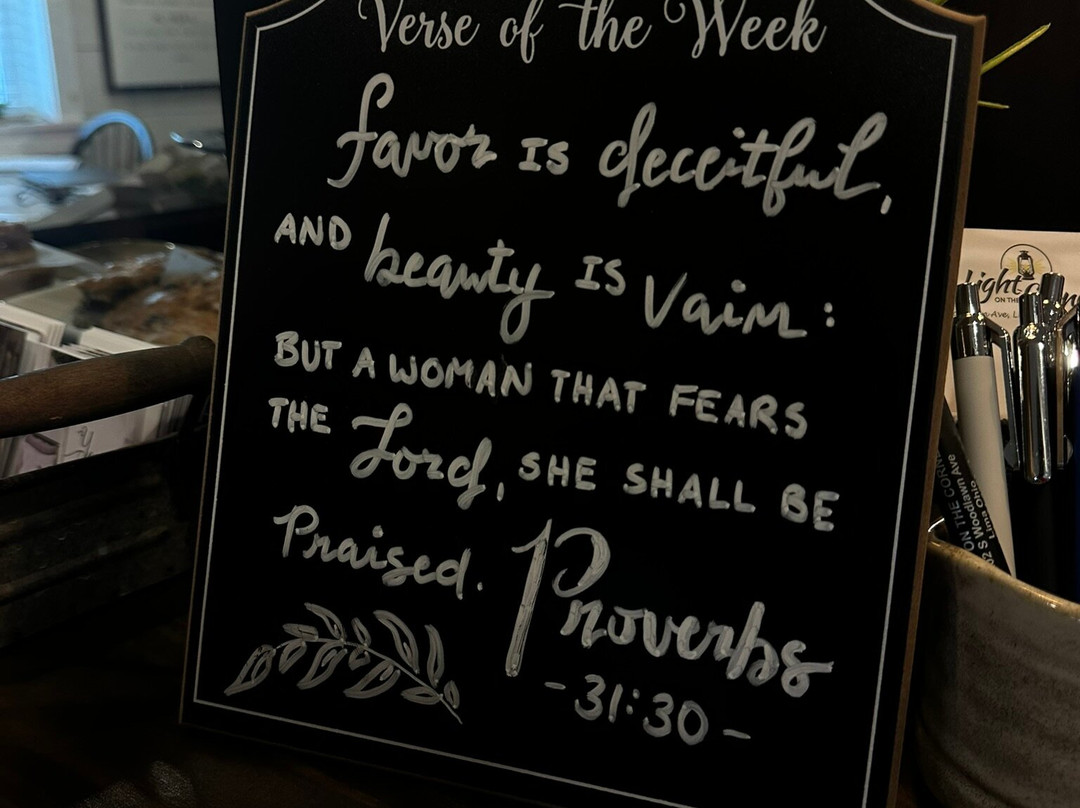 Verse of the Week
favor is deceitful,
AND beauty IS Vain:
BUT A WOMAN THAT FEARS
THE Lord, SHE SHALL BE
Praised. Proverbs
-31:30-
Light
ON THE
ON THE CORN
S Woodlawn Ave
Lima Ohio